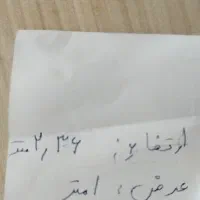 ارتفاع: ۲,۳۶ متر
عرض: ۱ متر